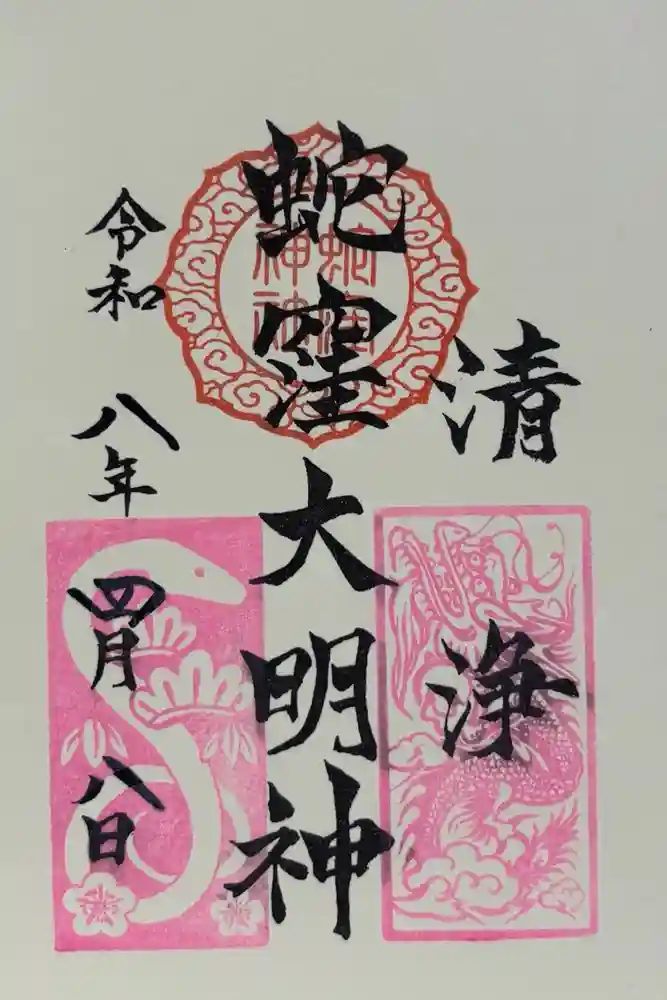 清浄
蛇窪大明神
蛇窪神社
令和八年四月八日